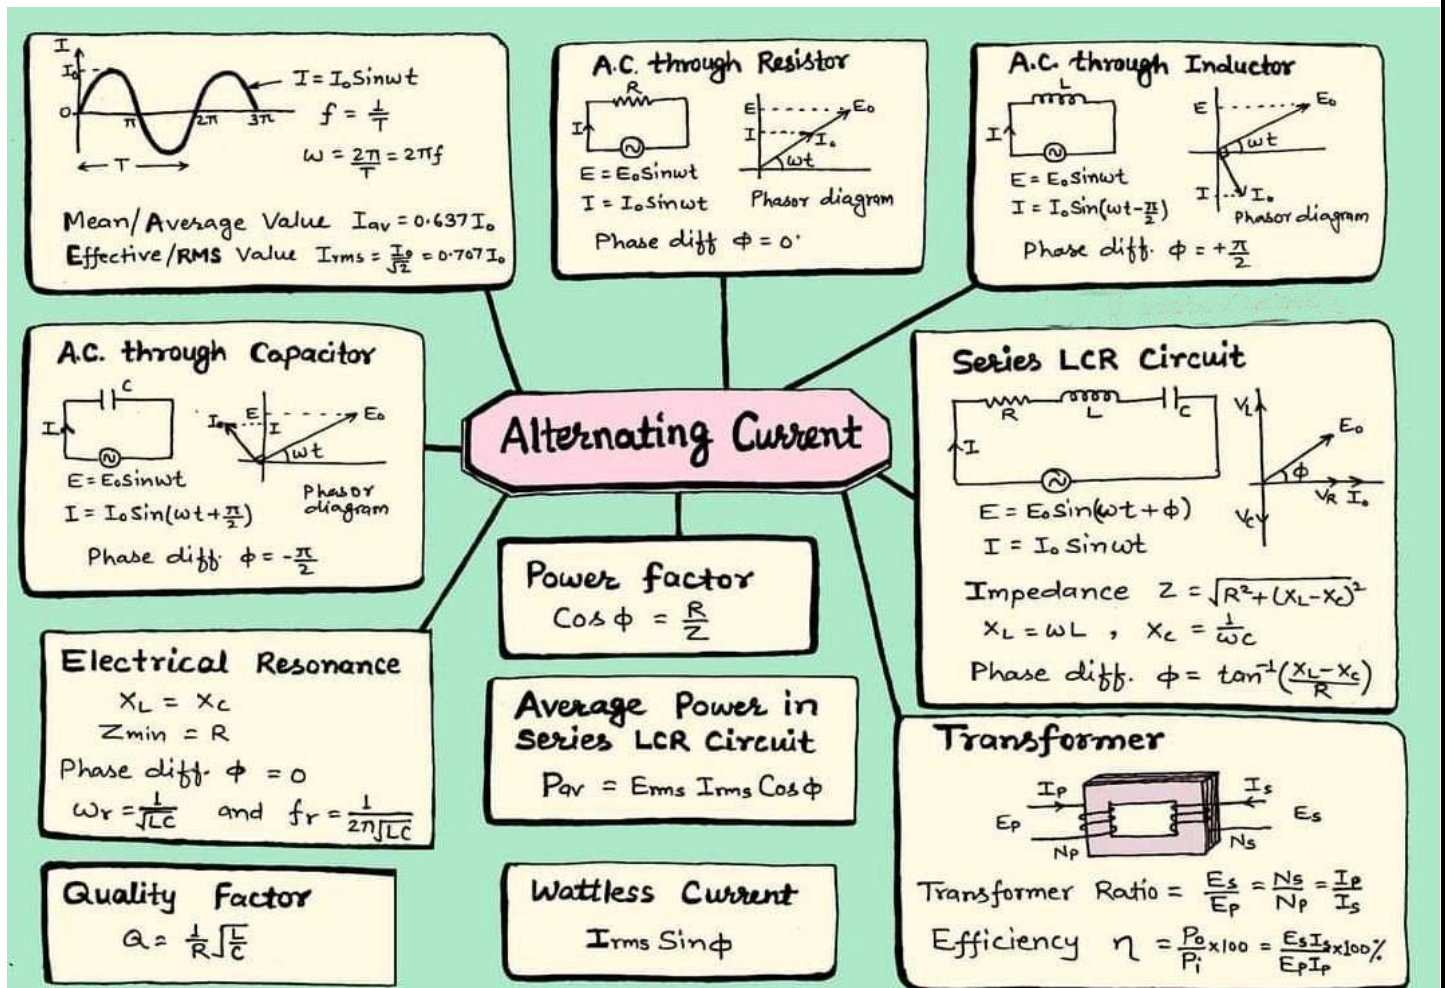 I
I₀
0
π
2π
3π
T
I = I₀ Sinωt
f = 1/T
ω = 2π/T = 2πf
Mean/Average Value Iav = 0.637 I₀
Effective/RMS Value Irms = I₀/√2 = 0.707 I₀
A.C. through Resistor
R
I
E
E₀
I
I₀
ωt
E = E₀ Sinωt
I = I₀ Sinωt
Phasor diagram
Phase diff Φ = 0°
A.C. through Inductor
L
I
E
E₀
ωt
I
I₀
E = E₀ Sinωt
I = I₀ Sin(ωt - π/2)
Phasor diagram
Phase diff. Φ = + π/2
A.C. through Capacitor
C
I
I₀
E
I
E₀
ωt
E = E₀ Sinωt
I = I₀ Sin(ωt + π/2)
Phasor
diagram
Phase diff. Φ = - π/2
Alternating Current
Series LCR Circuit
R
L
C
I
V_L
E₀
Φ
V_R I₀
V_C
E = E₀ Sin(ωt + Φ)
I = I₀ Sinωt
Impedance Z = √R² + (X_L - X_C)²
X_L = ωL , X_C = 1/ωC
Phase diff. Φ = tan⁻¹((X_L - X_C)/R)
Power factor
Cos Φ = R/Z
Electrical Resonance
X_L = X_C
Zmin = R
Phase diff. Φ = 0
ωr = 1/√LC and fr = 1/2π√LC
Average Power in
Series LCR Circuit
Pav = Erms Irms Cos Φ
Transformer
Ip
Is
Ep
Es
Np
Ns
Transformer Ratio = Es/Ep = Ns/Np = Ip/Is
Efficiency η = Po/Pi x100 = EsIs/EpIp x100%
Quality Factor
Q = 1/R √L/C
Wattless Current
Irms Sin Φ